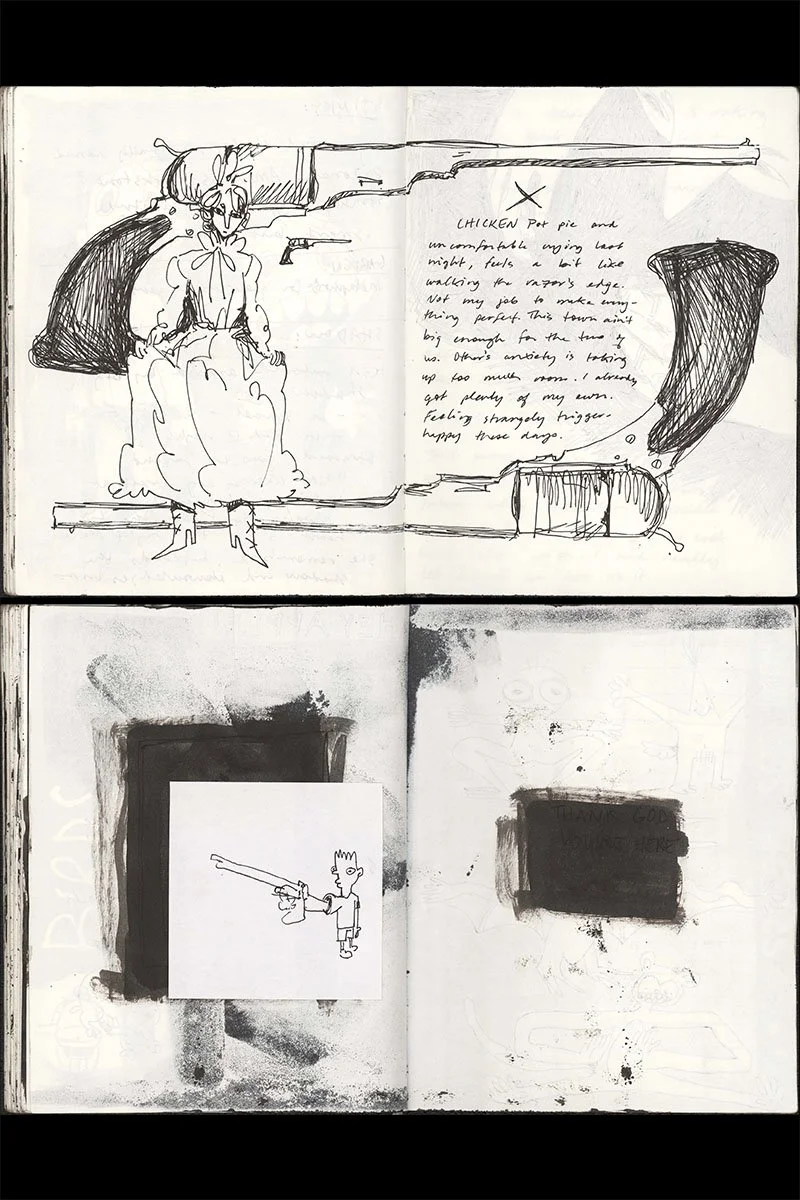 CHICKEN Pot pie and
uncomfortable crying last
night, feels a bit like
walking the razor's edge.
Not my job to make every-
thing perfect. This town ain't
big enough for the two of
us. Other's anxiety is taking
up too much room. I already
got plenty of my own.
Feeling strangely trigger-
happy these days.
THANK GOD
YOU'RE HERE